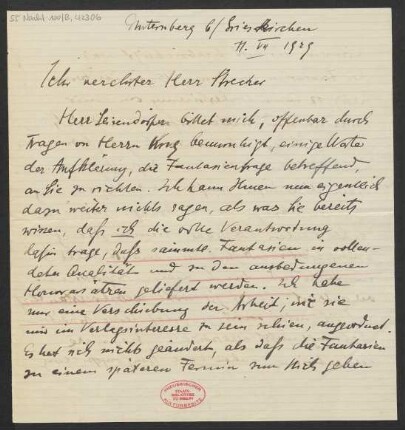 55 Nachl. 100/B,
b/ Grieskirchen
11. VII 1929
Sehr verehrter Herr Strecker
Herr bittet mich, offenbar durch
Fragen von Herrn beunruhigt, einige Worte
der Aufklärung, die Fantasienfrage betreffend,
an Sie zu richten. Ich kann Ihnen nun eigentlich
dazu weiter nichts sagen, als was Sie bereits
wissen, daß ich die volle Verantwortung
dafür trage, daß sämmtl. Fantasien in vollen-
deter Qualität und zu den ausbedungenen
Honorarsätzen geliefert werden. Ich habe
nur eine Verschiebung der Arbeit, wie sie
mir im Verlagsinteresse zu sein schien, angeordnet.
Es hat sich nichts geändert, als daß die Fantasien
zu einem späteren Termin zum Stich geben